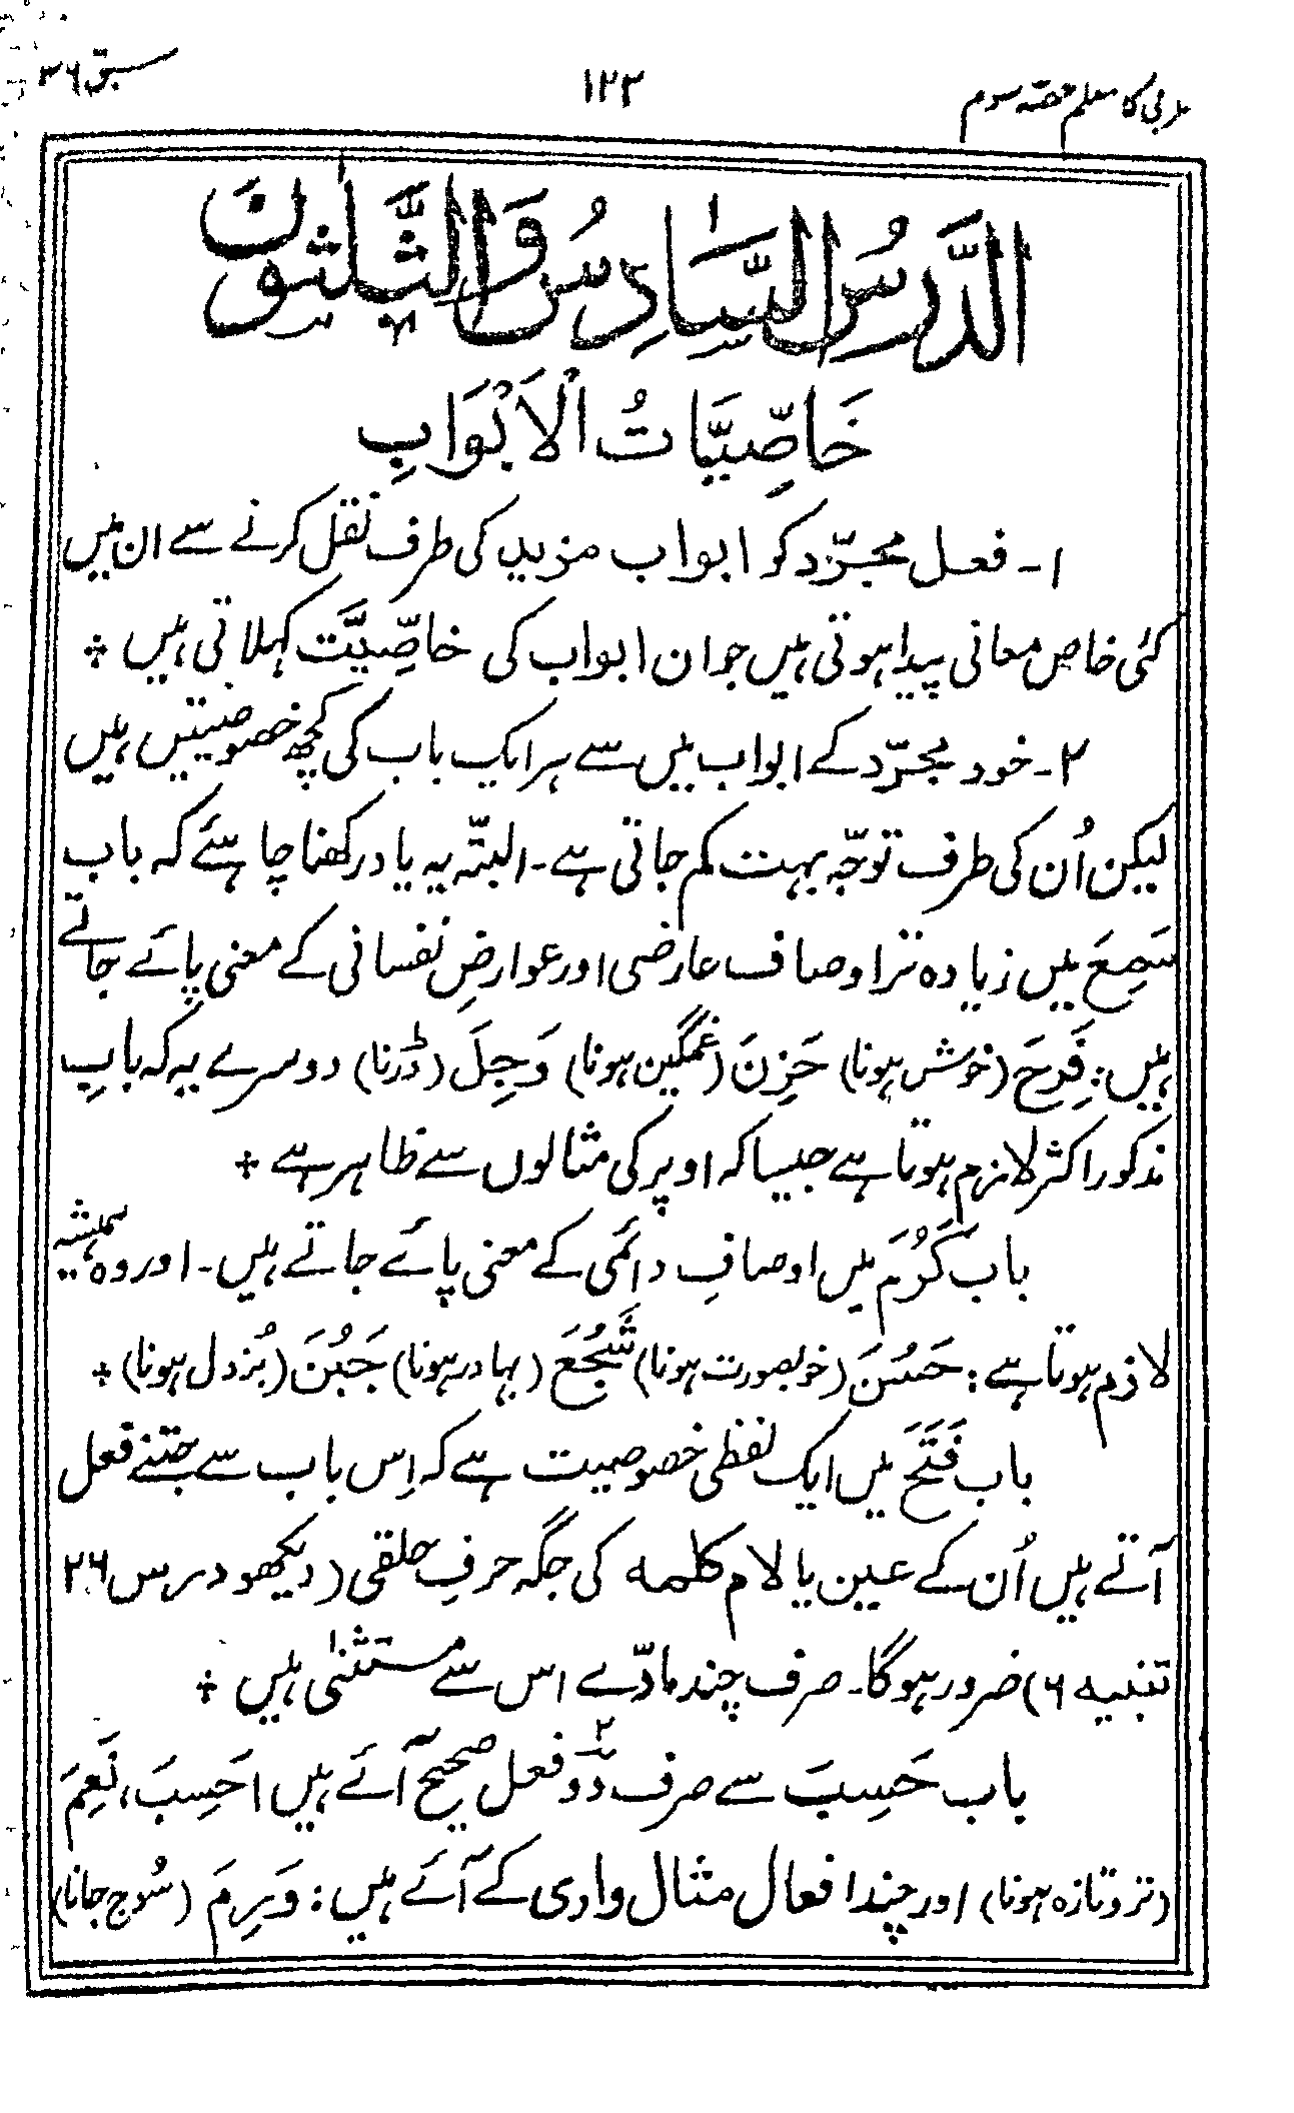 عربی کا معلم حصّہ سوم ۱۲۳ سبق ۳۶
الدَّرْسُ السَّادِسُ وَالثَّلٰثُوْنَ
خَاصِّيَّاتُ الْاَبْوَابِ
۱۔ فعل مجرّد کو ابواب مزید کی طرف نقل کرنے سے ان میں
کئی خاص معانی پیدا ہوتی ہیں جو ان ابواب کی خاصِّیَّت کہلاتی ہیں ÷
۲۔ خود مجرّد کے ابواب میں سے ہر ایک باب کی کچھ خصوصیتیں ہیں
لیکن اُن کی طرف توجّہ بہت کم جاتی ہے۔ البتّہ یہ یاد رکھنا چاہئے کہ باب
سَمِعَ میں زیادہ تر اوصاف عارضی اور عوارضِ نفسانی کے معنی پائے جاتے
ہیں: فَرِحَ (خوش ہونا) حَزِنَ (غمگین ہونا) وَجِلَ (ڈرنا) دوسرے یہ کہ بابِ
مذکور اکثر لازم ہوتا ہے جیسا کہ اوپر کی مثالوں سے ظاہر ہے ÷
باب کَرُمَ میں اوصافِ دائمی کے معنی پائے جاتے ہیں۔ اور وہ ہمیشہ
لازم ہوتا ہے: حَسُنَ (خوبصورت ہونا) شَجُعَ (بہادر ہونا) جَبُنَ (بُزدل ہونا) ÷
باب فَتَحَ میں ایک لفظی خصوصیت ہے کہ اِس باب سے جتنے فعل
آتے ہیں اُن کے عین یا لام کلمہ کی جگہ حرفِ حلقی (دیکھو درس ۲۶
تنبیہ ۶) ضرور ہوگا۔ صرف چند مادّے اس سے مستثنٰی ہیں ÷
باب حَسِبَ سے صرف دو۲ فعل صحیح آئے ہیں احَسِبَ، نَعِمَ
(تروتازہ ہونا) اور چند افعال مثال وادی کے آئے ہیں: وَرِمَ (سُوج جانا)